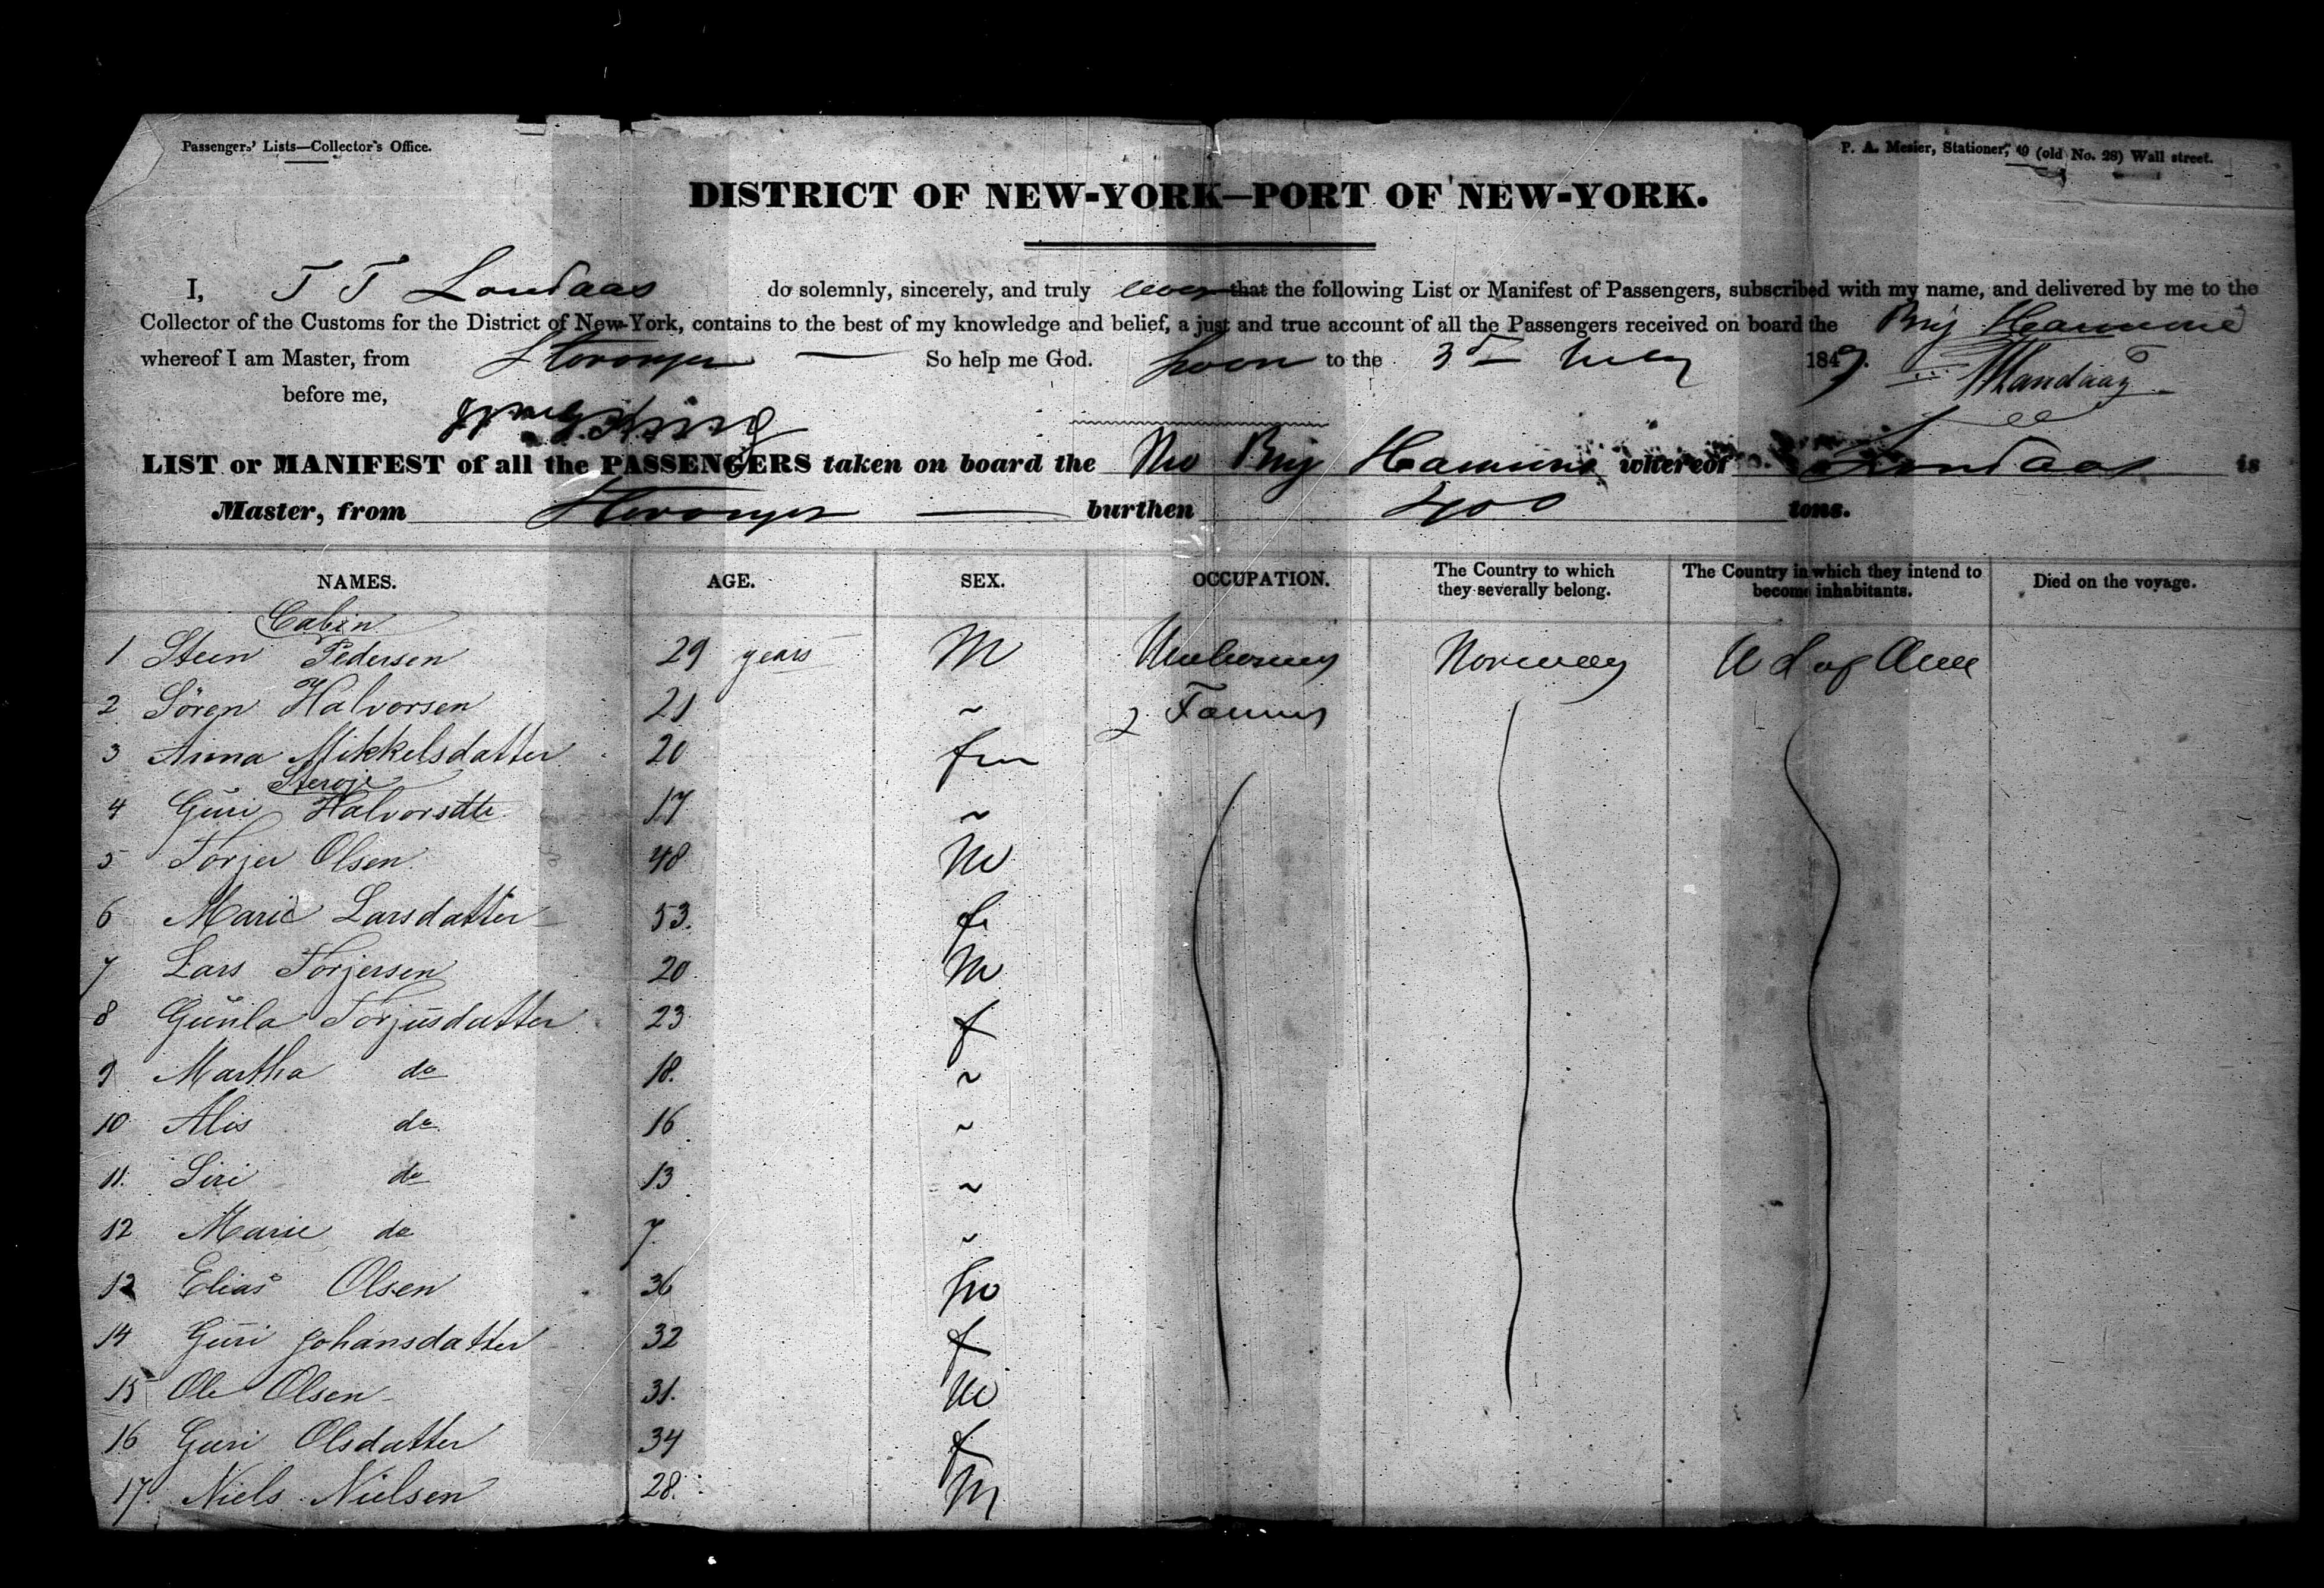 Passengers' Lists—Collector's Office.
P. A. Mesier, Stationer, 49 (old No. 28) Wall street.
DISTRICT OF NEW-YORK—PORT OF NEW-YORK.
I, T T Landaas do solemnly, sincerely, and truly swear that the following List or Manifest of Passengers, subscribed with my name, and delivered by me to the
Collector of the Customs for the District of New-York, contains to the best of my knowledge and belief, a just and true account of all the Passengers received on board the Brig
whereof I am Master, from Stavanger So help me God. Sworn to the 3d July 1849.
before me, TTLandaas
LIST or MANIFEST of all the PASSENGERS taken on board the Brig whereof Landaas is
Master, from Stavanger burthen 400 tons.
NAMES. AGE. SEX. OCCUPATION. The Country to which they severally belong. The Country in which they intend to become inhabitants. Died on the voyage.
Cabin
1 Steen Pedersen 29 years M Norway U S of Ame
2 Sören Halvorsen 21 ~ Farmer
3 Anna Mikkelsdatter 20 fm
4 Guri Halvorsdtr 17 ~
5 Torjer Olsen 48 M
6 Marie Larsdatter 53. f
7 Lars Torjersen 20 M
8 Gunla Torjusdatter 23 f
9 Martha do 18. ~
10 Alis do 16 ~
11. Siri do 13 ~
12 Marie do 7. ~
13 Elias Olsen 36 M
14 Guri Johansdatter 32 f
15 Ole Olsen 31. M
16 Guri Olsdatter 34 f
17. Niels Nielsen 28. M